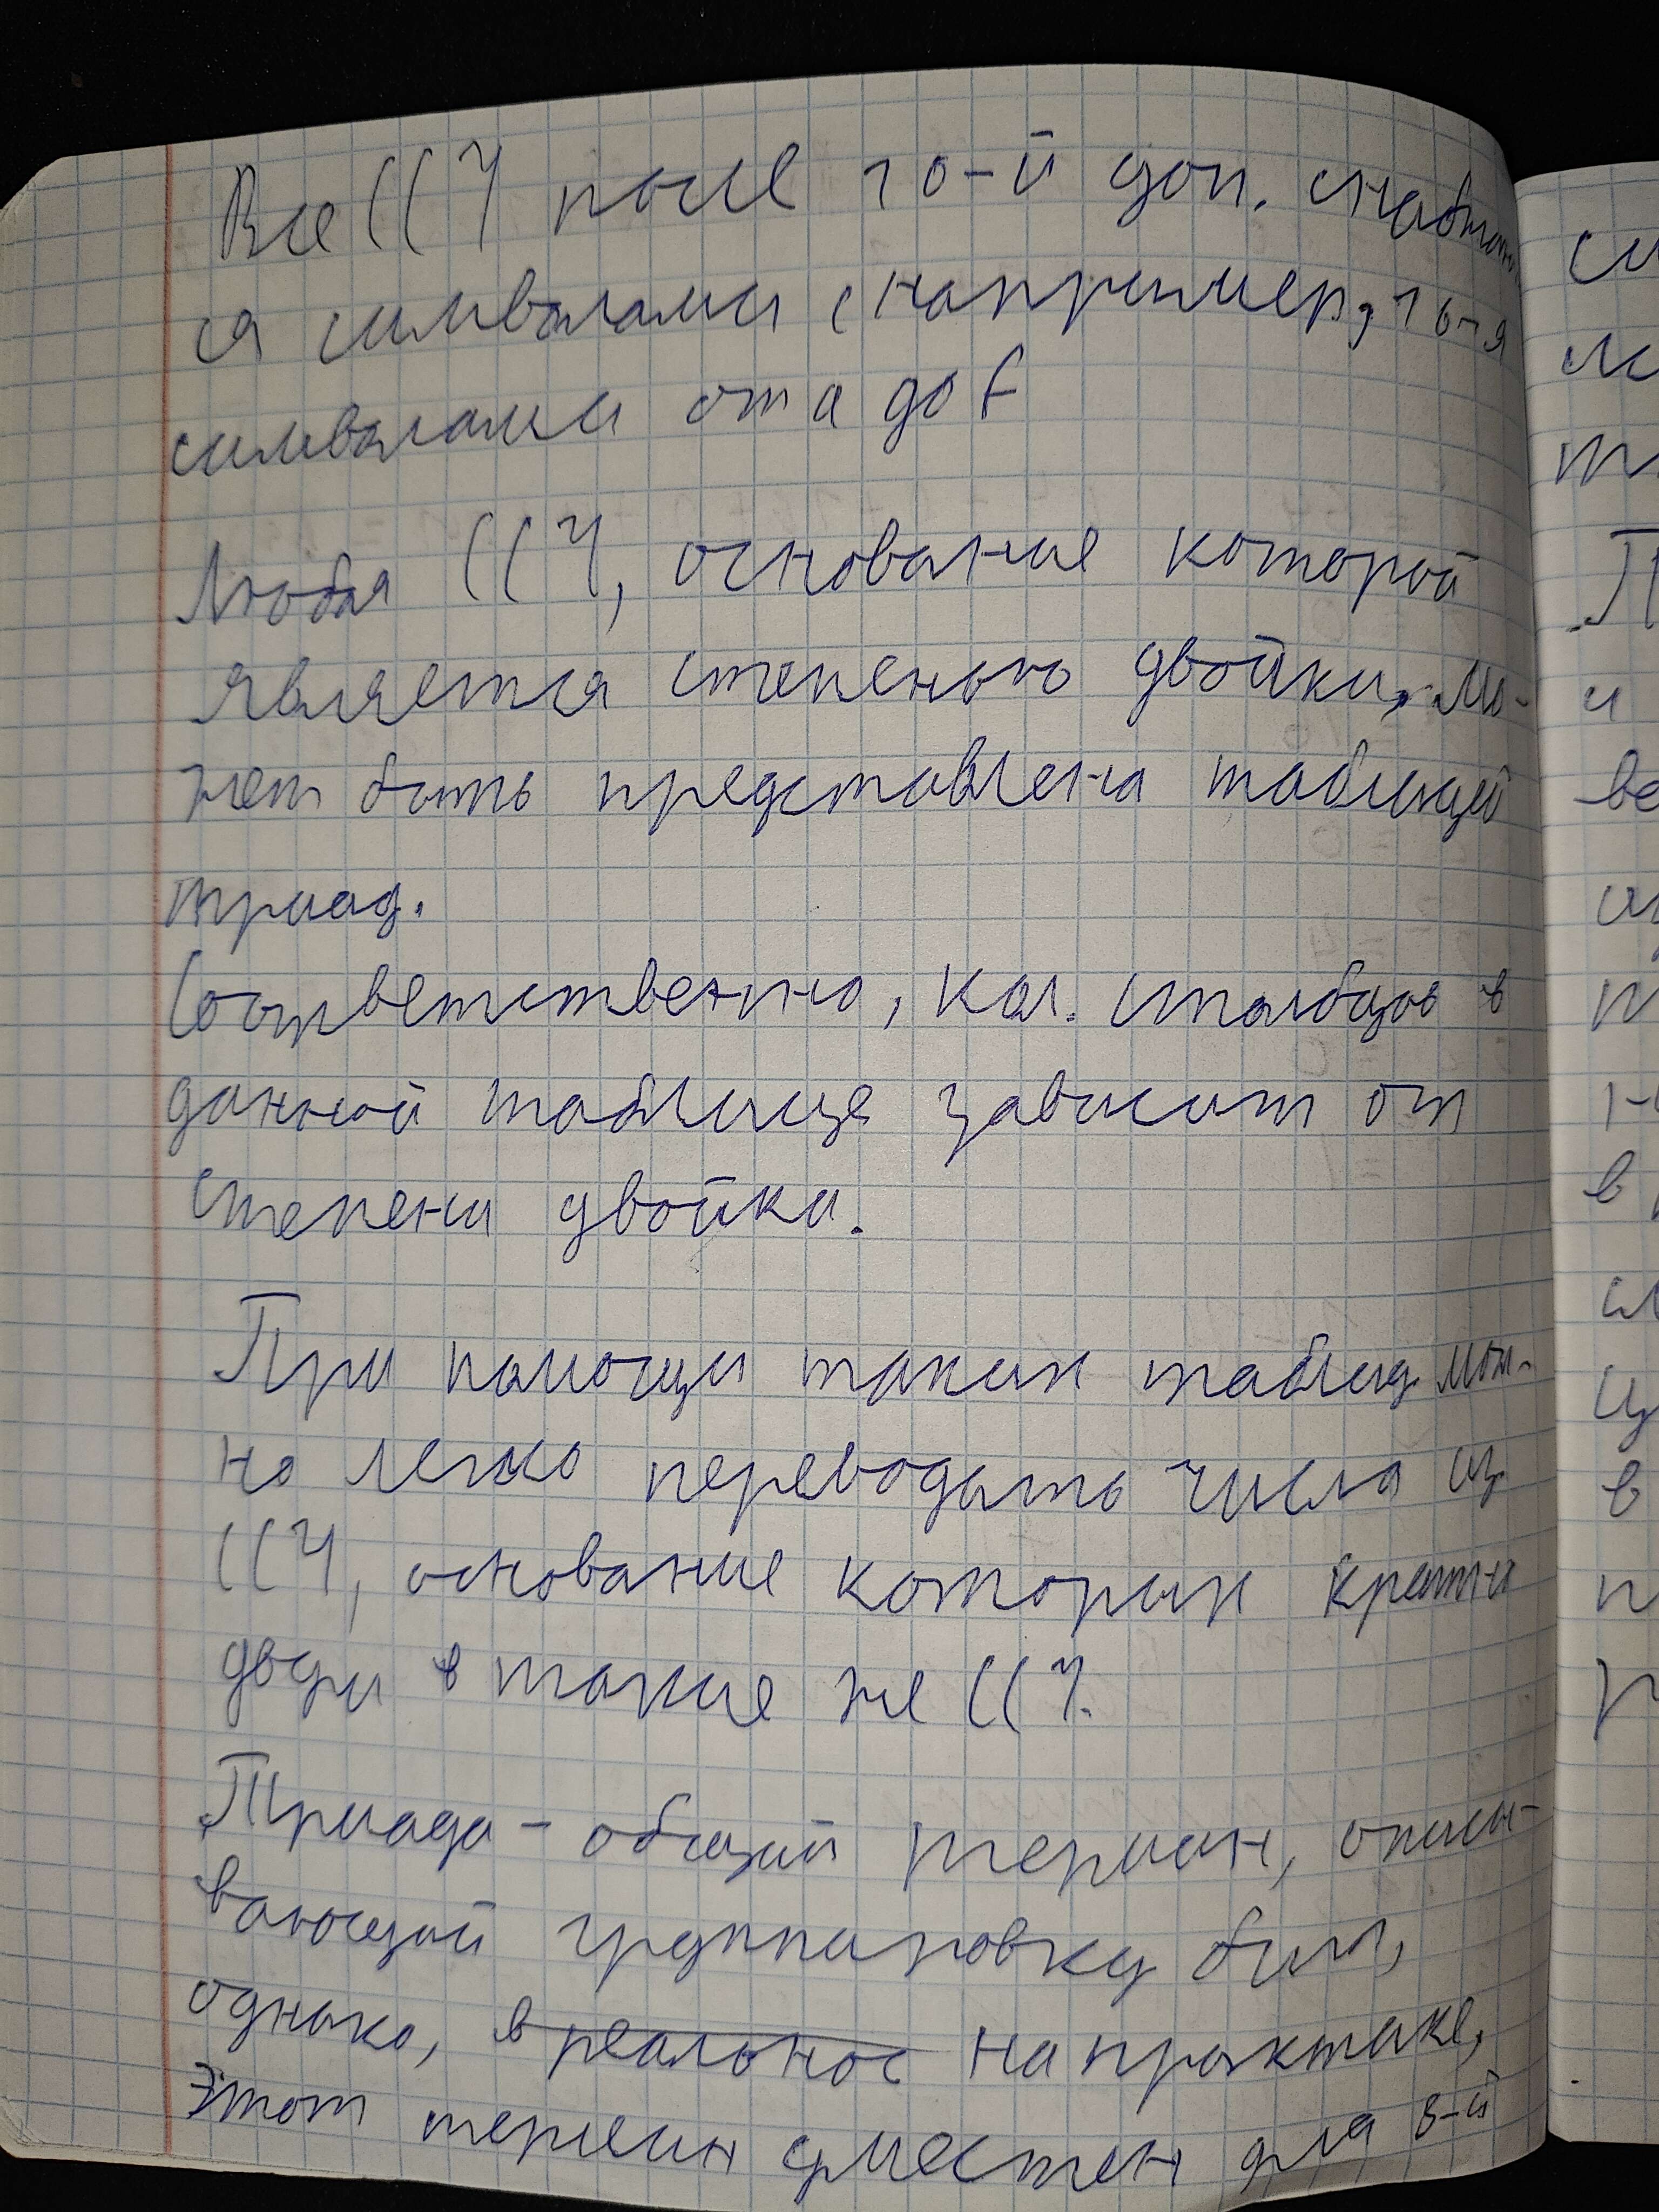 Все ССЧ после 10-й доп. снабжают
ся символами (например, 16-я
символами от a до f
Любая ССЧ, основание которой
является степенью двойки, мо-
жет быть представлена таблицей
триад.
Соответственно, кол. столбцов в
данной таблице зависит от
степени двойки.
При помощи таких таблиц мож-
но легко переводить числа из
ССЧ, основание которых кратны
двум в такие же ССЧ.
Триада - общий термин, описы-
вающий группировку бит,
однако, в реальнос на практике,
Этот термин уместен для 8-й